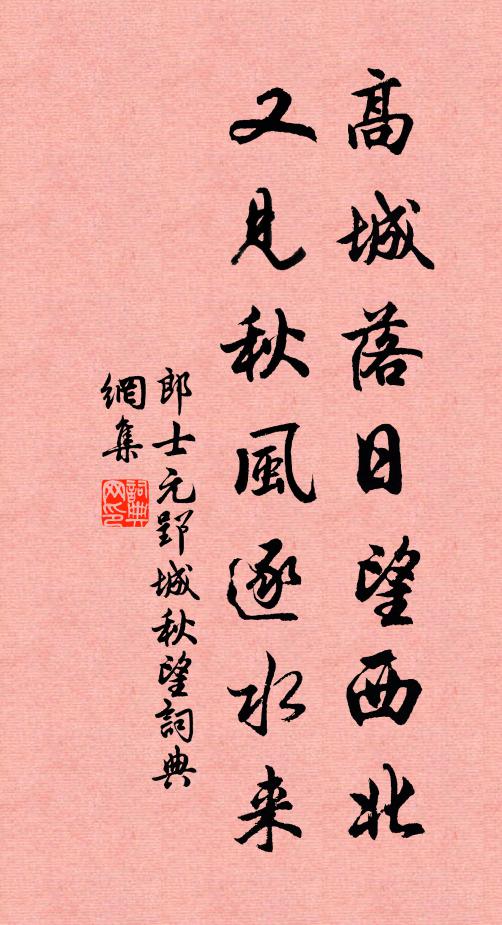 高城落日望西北
又見秋風逐水来
郎士元郢城秋望詞典
網集
詞典網印